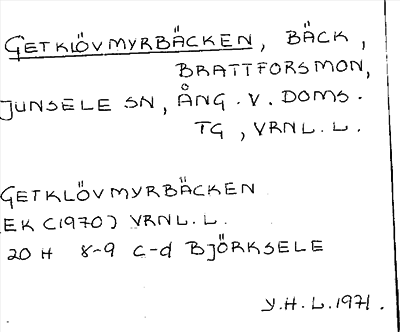 GETKLÖVMYRBÄCKEN, BÄCK,
BRATTFORSMON,
JUNSELE SN, ÅNG. V. DOMS.
TG, VRNL.L.
GETKLÖVMYRBÄCKEN
EK (1970) VRNL.L.
20 H 8-9 C-d BJÖRKSELE
Y.H.L.1971.